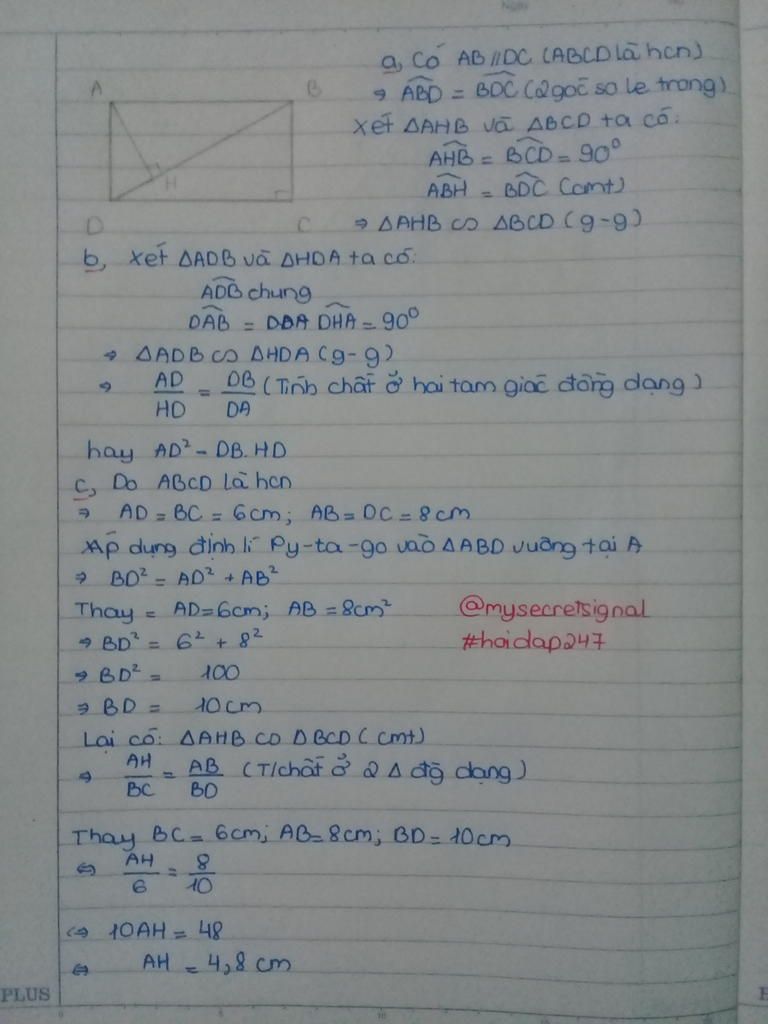 A
B
H
D
C
a, Có AB // DC (ABCD là hcn)
⇒ ABD = BDC (2 góc so le trong)
Xét △AHB và △BCD ta có:
AHB = BCD = 90°
ABH = BDC (cmt)
⇒ △AHB ∽ △BCD (g-g)
b, Xét △ADB và △HDA ta có:
ADB chung
DAB = DHA = 90°
⇒ △ADB ∽ △HDA (g-g)
⇒ AD/HD = DB/DA (Tính chất ở hai tam giác đồng dạng)
hay AD² = DB.HD
c, Do ABCD là hcn
⇒ AD = BC = 6cm; AB = DC = 8cm
Áp dụng định lí Py-ta-go vào △ABD vuông tại A
⇒ BD² = AD² + AB²
Thay = AD=6cm; AB = 8cm²
@mysecretsignal
⇒ BD² = 6² + 8²
#hoidap247
⇒ BD² = 100
⇒ BD = 10cm
Lại có: △AHB ∽ △BCD (cmt)
⇒ AH/BC = AB/BD (T/chất ở 2 △ đg dạng)
Thay BC = 6cm; AB=8cm; BD = 10cm
⇔ AH/6 = 8/10
⇔ 10AH = 48
⇔ AH = 4,8 cm
PLUS